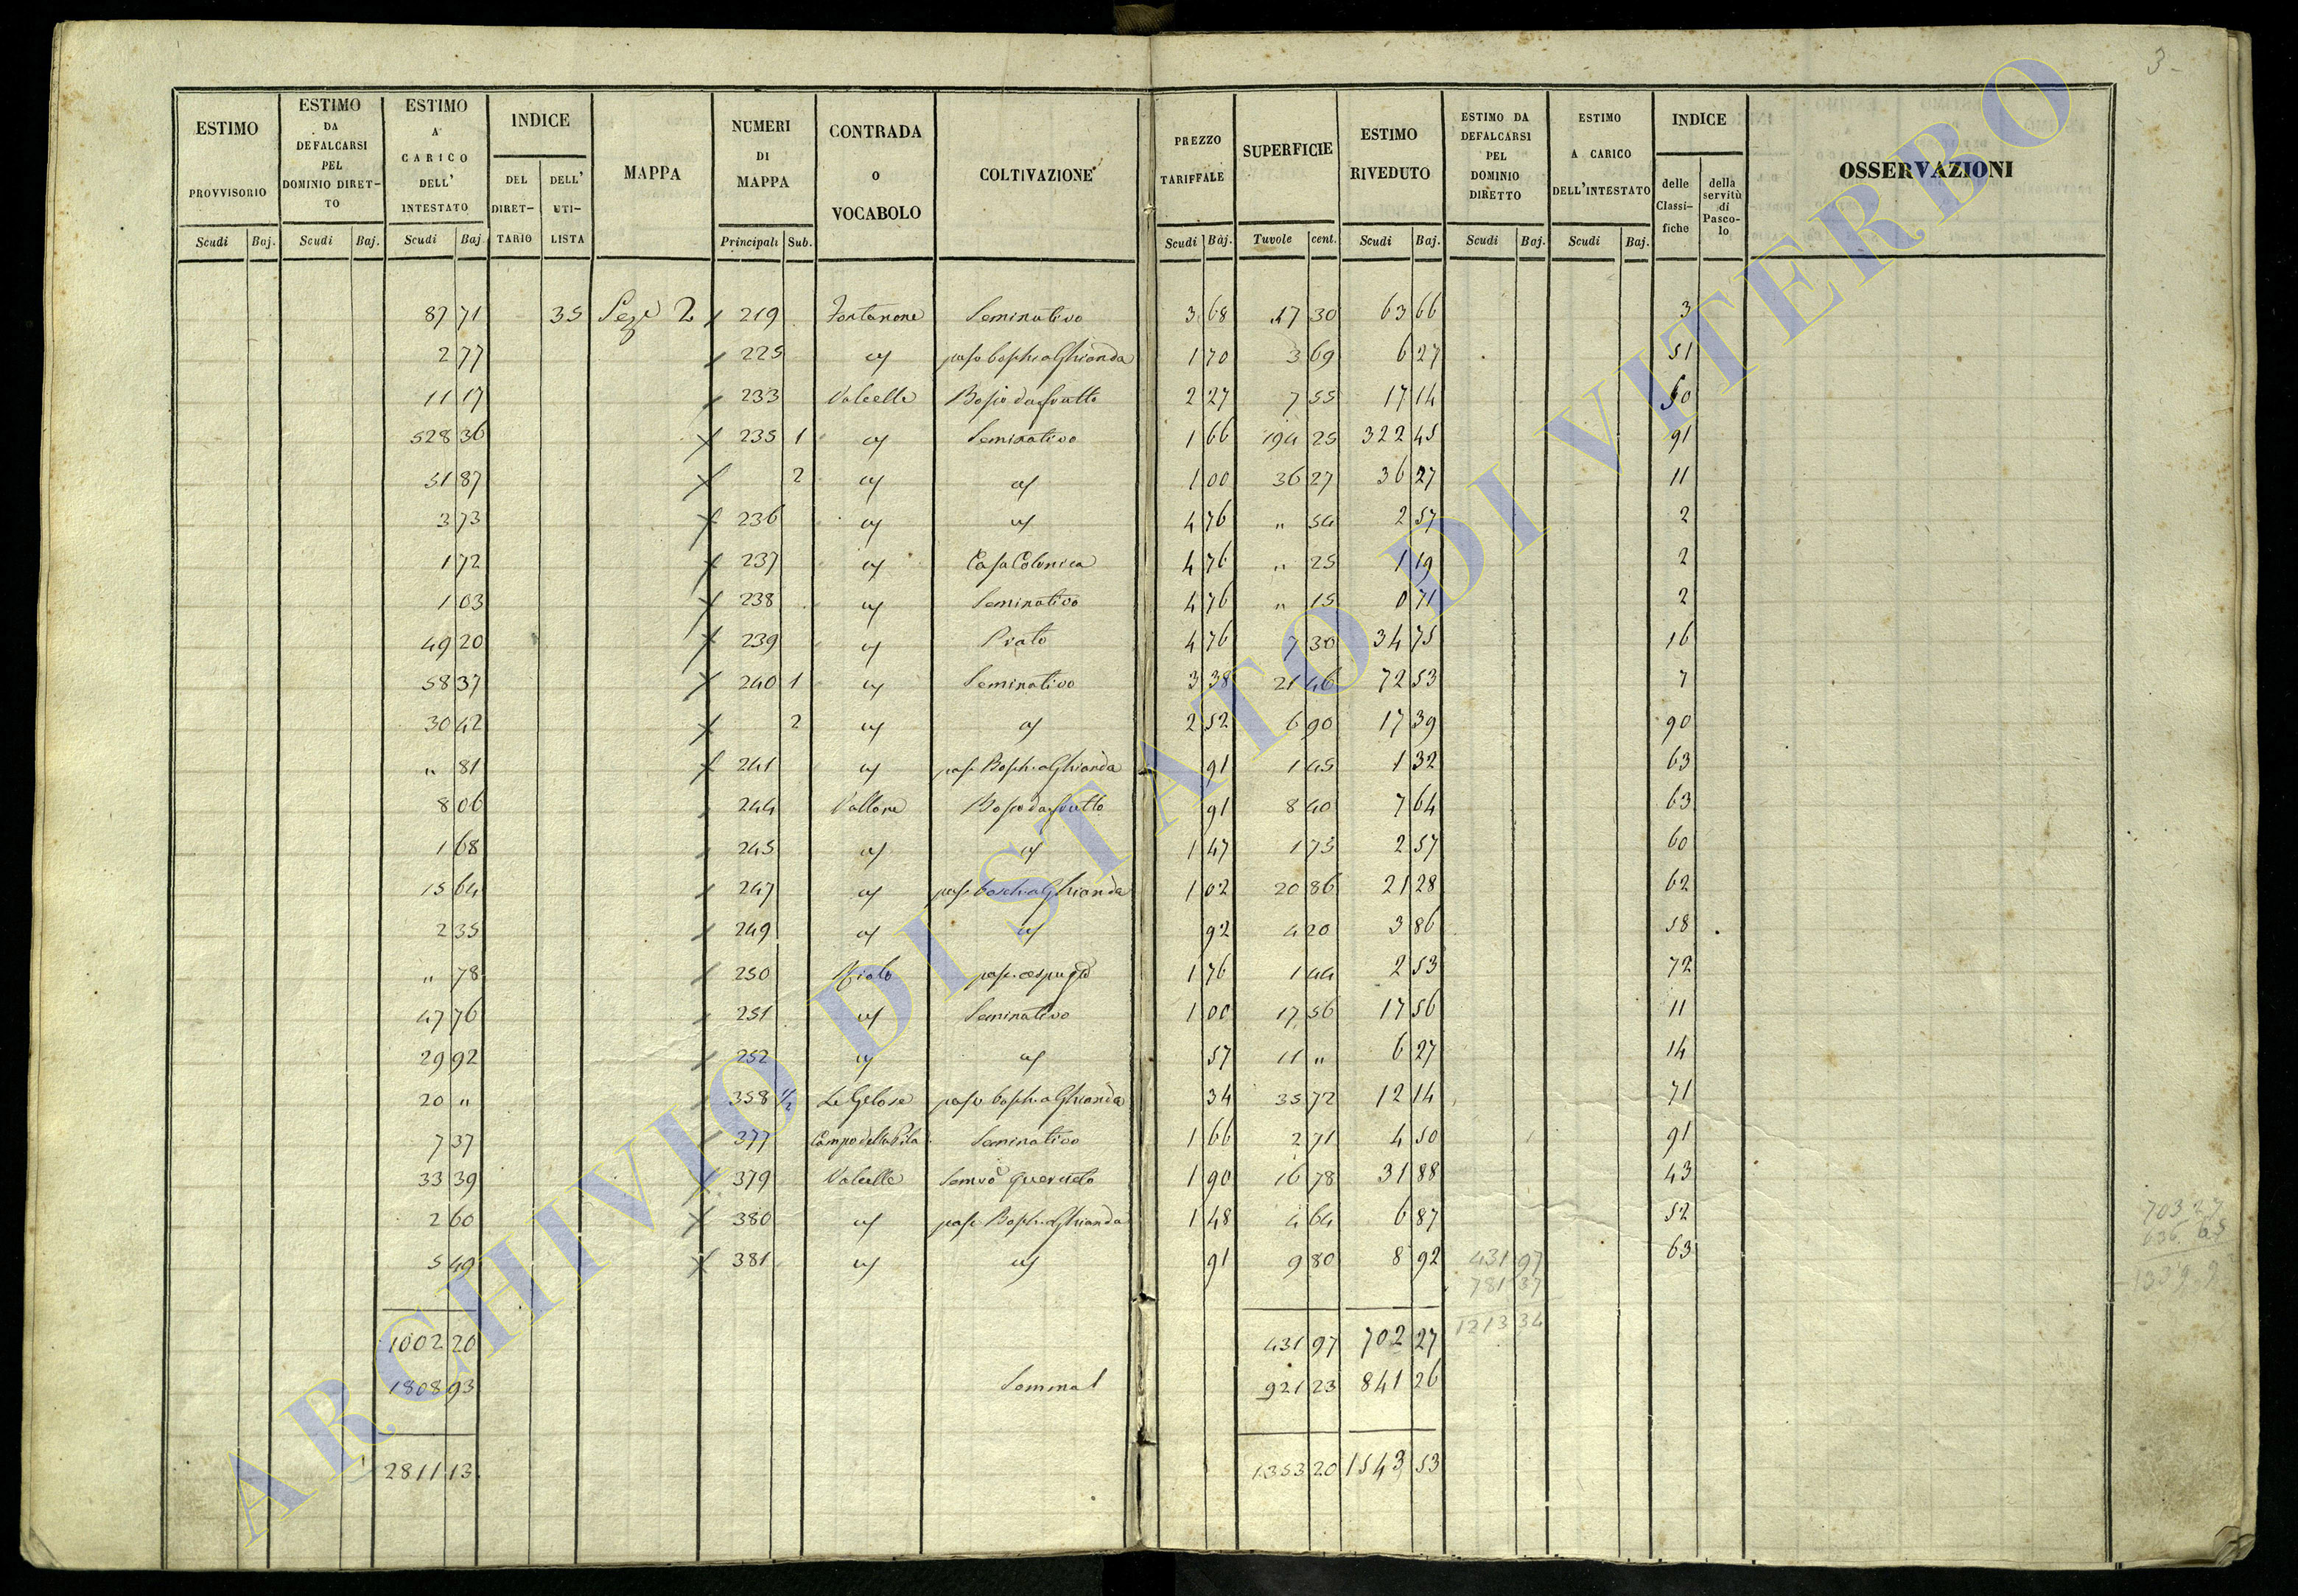 3
ESTIMO PROVVISORIO
ESTIMO DA DEFALCARSI PEL DOMINIO DIRETTO
ESTIMO A CARICO DELL' INTESTATO
INDICE
DEL DIRETTARIO
DELL' UTILISTA
MAPPA
NUMERI DI MAPPA
CONTRADA O VOCABOLO
COLTIVAZIONE
PREZZO TARIFFALE
SUPERFICIE
ESTIMO RIVEDUTO
ESTIMO DA DEFALCARSI PEL DOMINIO DIRETTO
ESTIMO A CARICO DELL'INTESTATO
INDICE
delle Classifiche
della servitù di Pascolo
OSSERVAZIONI
Scudi Baj. Scudi Baj. Scudi Baj. Principali Sub. Scudi Baj. Tavole cent. Scudi Baj. Scudi Baj. Scudi Baj.
87 71 35 Seze 2 219 Fontanone Seminativo 3 68 17 30 63 66 3
2 77 225 " paso boschi a Ghianda 1 70 3 69 6 27 51
11 17 233 Valcelle Bosco da frutto 2 27 7 55 17 14 50
528 36 235 1 " Seminativo 1 66 194 25 322 45 91
51 87 2 " " 1 00 36 27 36 27 11
3 73 236 " " 4 76 " 54 2 57 2
1 72 237 " Casa Colonica 4 76 " 25 1 19 2
1 03 238 " Seminativo 4 76 " 15 0 71 2
49 20 239 " Prato 4 76 7 30 34 75 16
58 37 240 1 " Seminativo 3 38 21 46 72 53 7
30 42 2 " " 2 52 6 90 17 39 90
" 81 241 " pas. Bosch. a Ghianda 91 1 45 1 32 63
8 06 244 Vallone Bosco da frutto 91 8 40 7 64 63
1 68 245 " " 1 47 1 75 2 57 60
15 64 247 " pas. bosch. a Ghianda 1 02 20 86 21 28 62
2 35 249 " " 92 4 20 3 86 58
" 78 250 pas. cespug 1 76 1 44 2 53 72
47 76 251 " Seminativo 1 00 17 56 17 56 11
29 92 252 " " 57 11 " 6 27 14
20 " 358 1/2 Le Gelose paso bosch. a Ghianda 34 35 72 12 14 71
7 37 377 Campo della Pila Seminativo 1 66 2 71 4 50 91
33 39 379 Valcelle Semvo Querciato 1 90 16 78 31 88 43
2 60 380 " pas. Bosch. a Ghianda 1 48 4 64 6 87 52
5 49 381 " " 91 9 80 8 92 63
431 97
781 37
1213 34
703 27
636 65
1002 20 431 97 702 27
1808 93 Somma 1 921 23 841 26
2811 13 1353 20 1543 53
ARCHIVIO DI STATO DI VITERBO